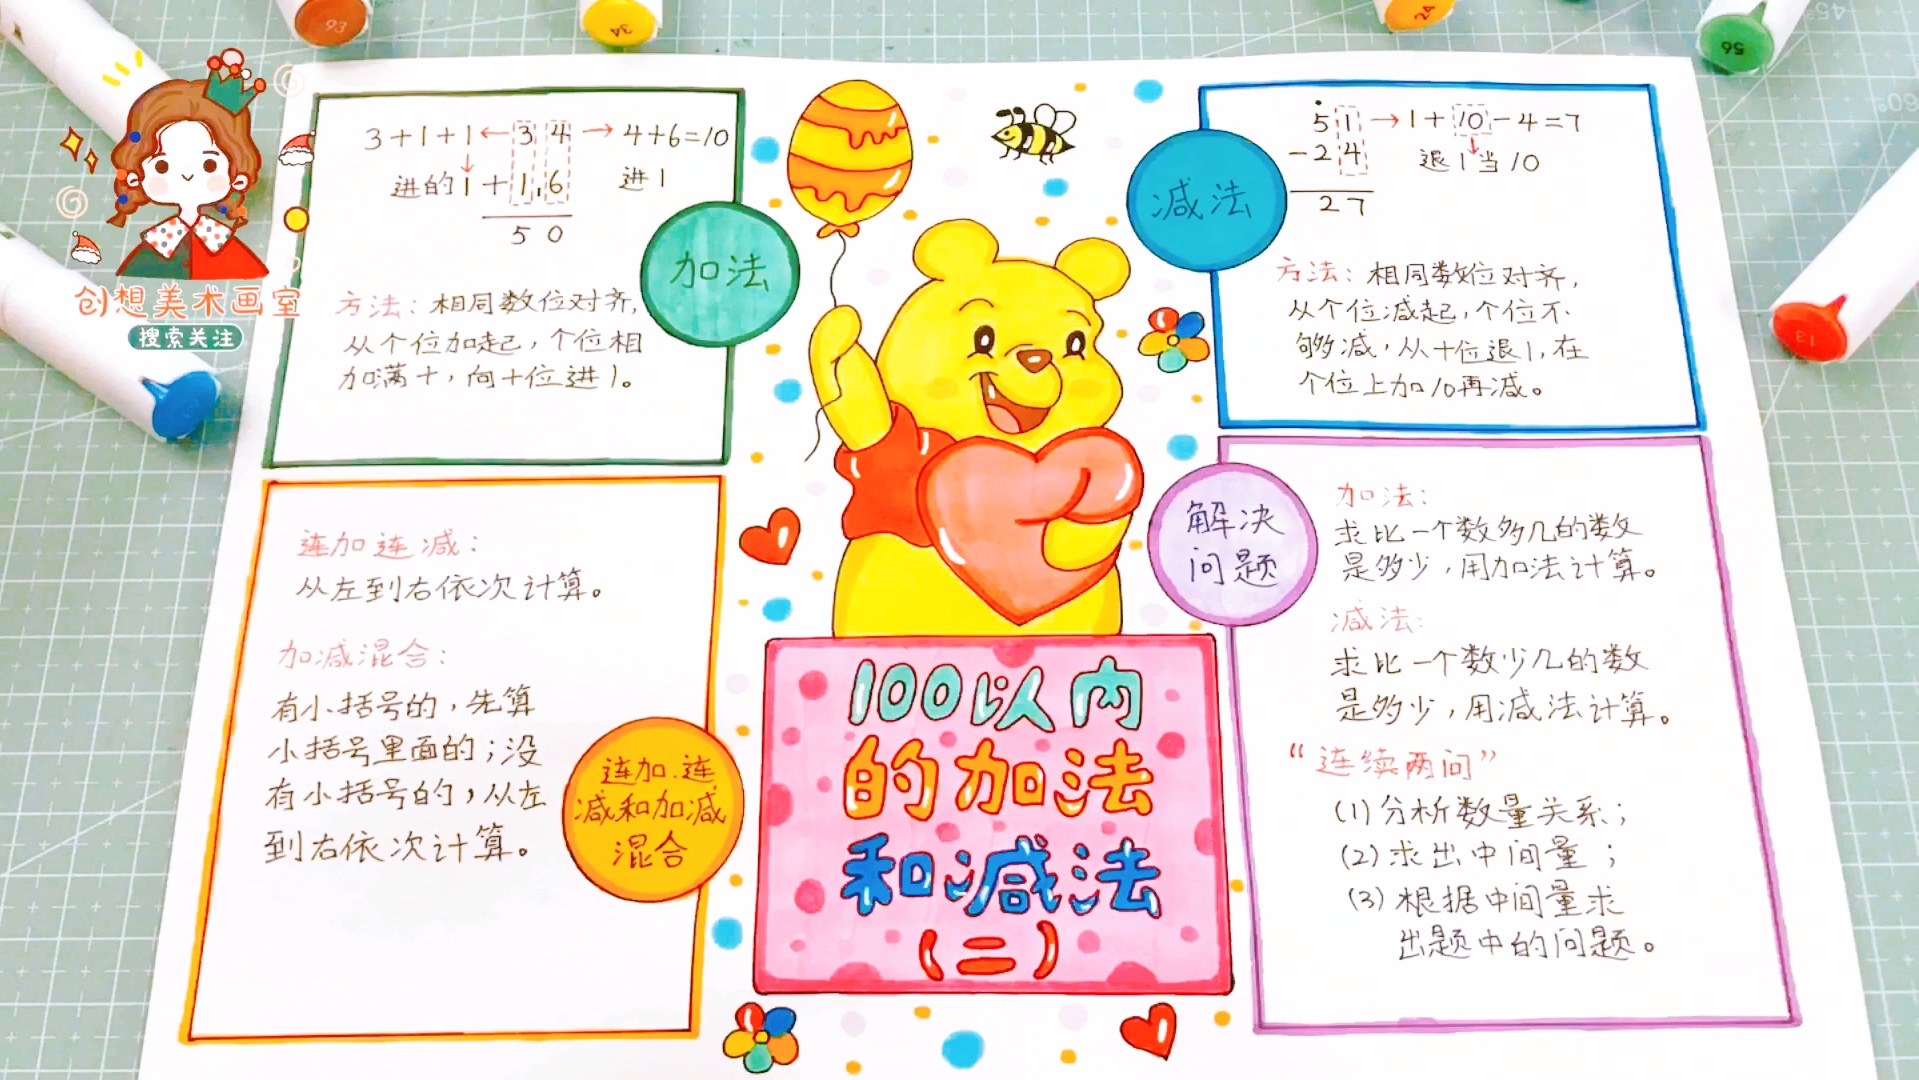 创想美术画室
搜索关注
3+1+1←34→4+6=10
进的1+16 进1
50
加法
方法：相同数位对齐，
从个位加起，个位相
加满十，向十位进1。
51→1+10-4=7
-24 退1当10
27
减法
方法：相同数位对齐，
从个位减起，个位不
够减，从十位退1，在
个位上加10再减。
连加连减：
从左到右依次计算。
加减混合：
有小括号的，先算
小括号里面的；没
有小括号的，从左
到右依次计算。
连加.连
减和加减
混合
100以内
的加法
和减法
（二）
解决
问题
加法：
求比一个数多几的数
是多少，用加法计算。
减法：
求比一个数少几的数
是多少，用减法计算。
“连续两问”
(1)分析数量关系；
(2)求出中间量；
(3)根据中间量求
出题中的问题。
93
34
24
56
13